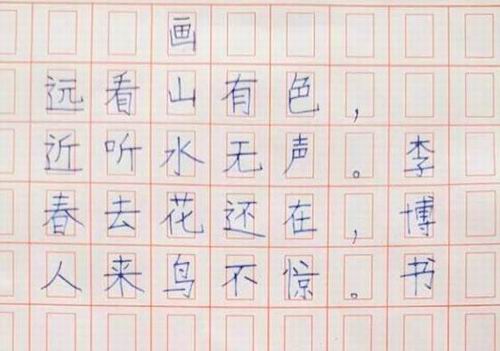 画
远看山有色，
近听水无声。
春去花还在，
人来鸟不惊。
李博书